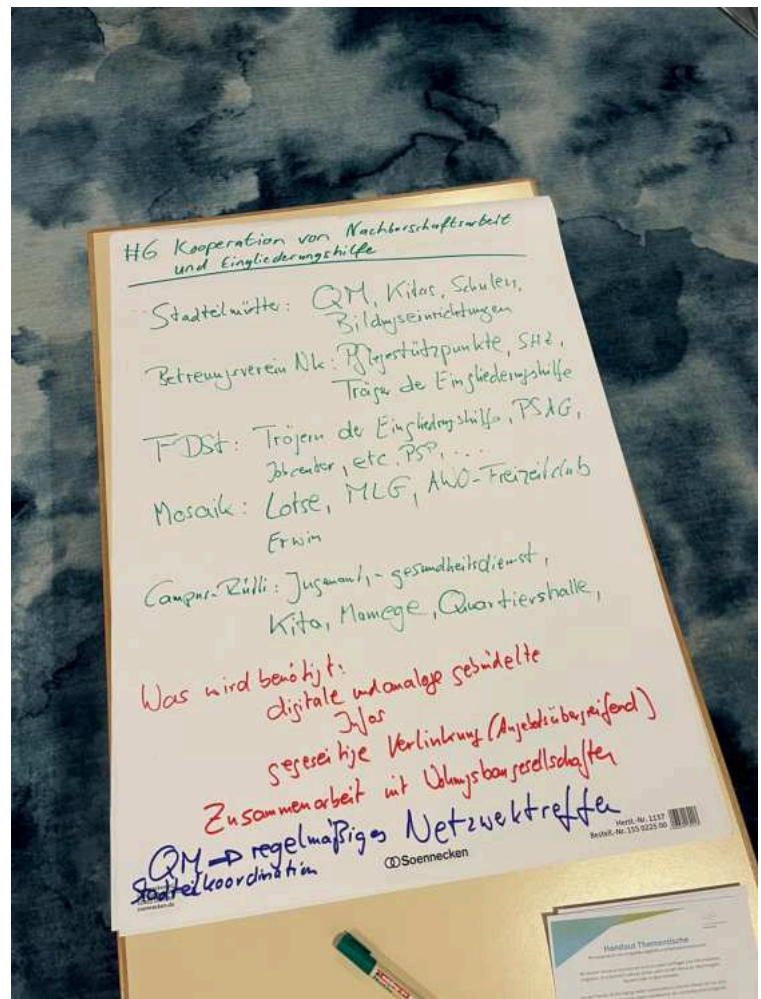 #6 Kooperation von Nachbarschaftsarbeit
und Eingliederungshilfe
Stadtteilmütter: QM, Kitas, Schulen,
Bildungseinrichtungen
Betreuungsverein Nk: Pflegestützpunkte, SHZ,
Träger de Eingliederungshilfe
FDSt: Trägern de Eingliedrungshilfe, PSAG,
Jobcenter, etc. PSP, ....
Mosaik: Lotse, MLG, AWO-Freizeitclub
Erwin
Campus-Rütli: Jugenamt, -gesundheitsdienst,
Kita, Mamege, Quartiershalle,
Was wird benötigt:
digitale und analoge gebündelte
Infos
gegeseitige Verlinkung (Angebotsübergreifend)
Zusammenarbeit mit Wohnungsbaugesellschaften
QM → regelmäßiges Netzwektreffen
Stadtteilkoordination
Soennecken
Herst.-Nr. 1157
Bestell.-Nr. 155 0225 00
soennecken.de
Handout Thementische